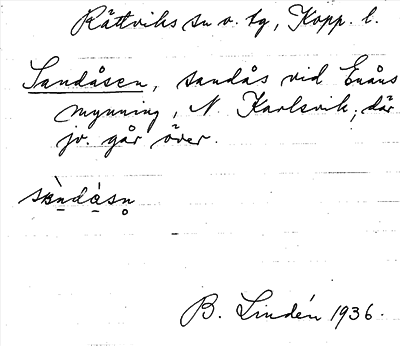 Rättviks sn o. tg, Kopp. l.
Sandåsen, sandås vid Enåns
mynning, N. Karlsvik, där
jv. går över.
sàndàsn̥
B. Lindén 1936.